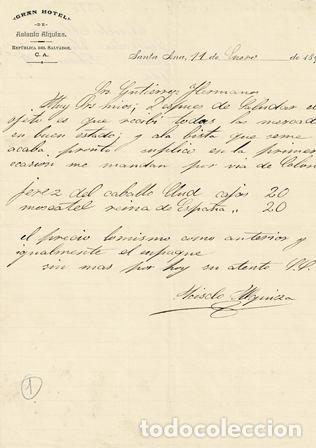 GRAN HOTEL
DE
REPÚBLICA DEL SALVADOR,
C. A.
Santa Ana, 11 de Enero de 189
Sr Gutierrez Hermano
Muy Srs mios; Despues de Saludar
ojeto es que recibi todas la mercad
en buen estado; y ala bista que seme
acaba pronto suplico en la primer
ocasion me mandan por via de Colon
jerez del caballo Clud cajas 20
moscatel reina de España " 20
el precio lomismo como anterior y
igualmente el enpaque
sin mas por hoy su atento
1
todocoleccion.net